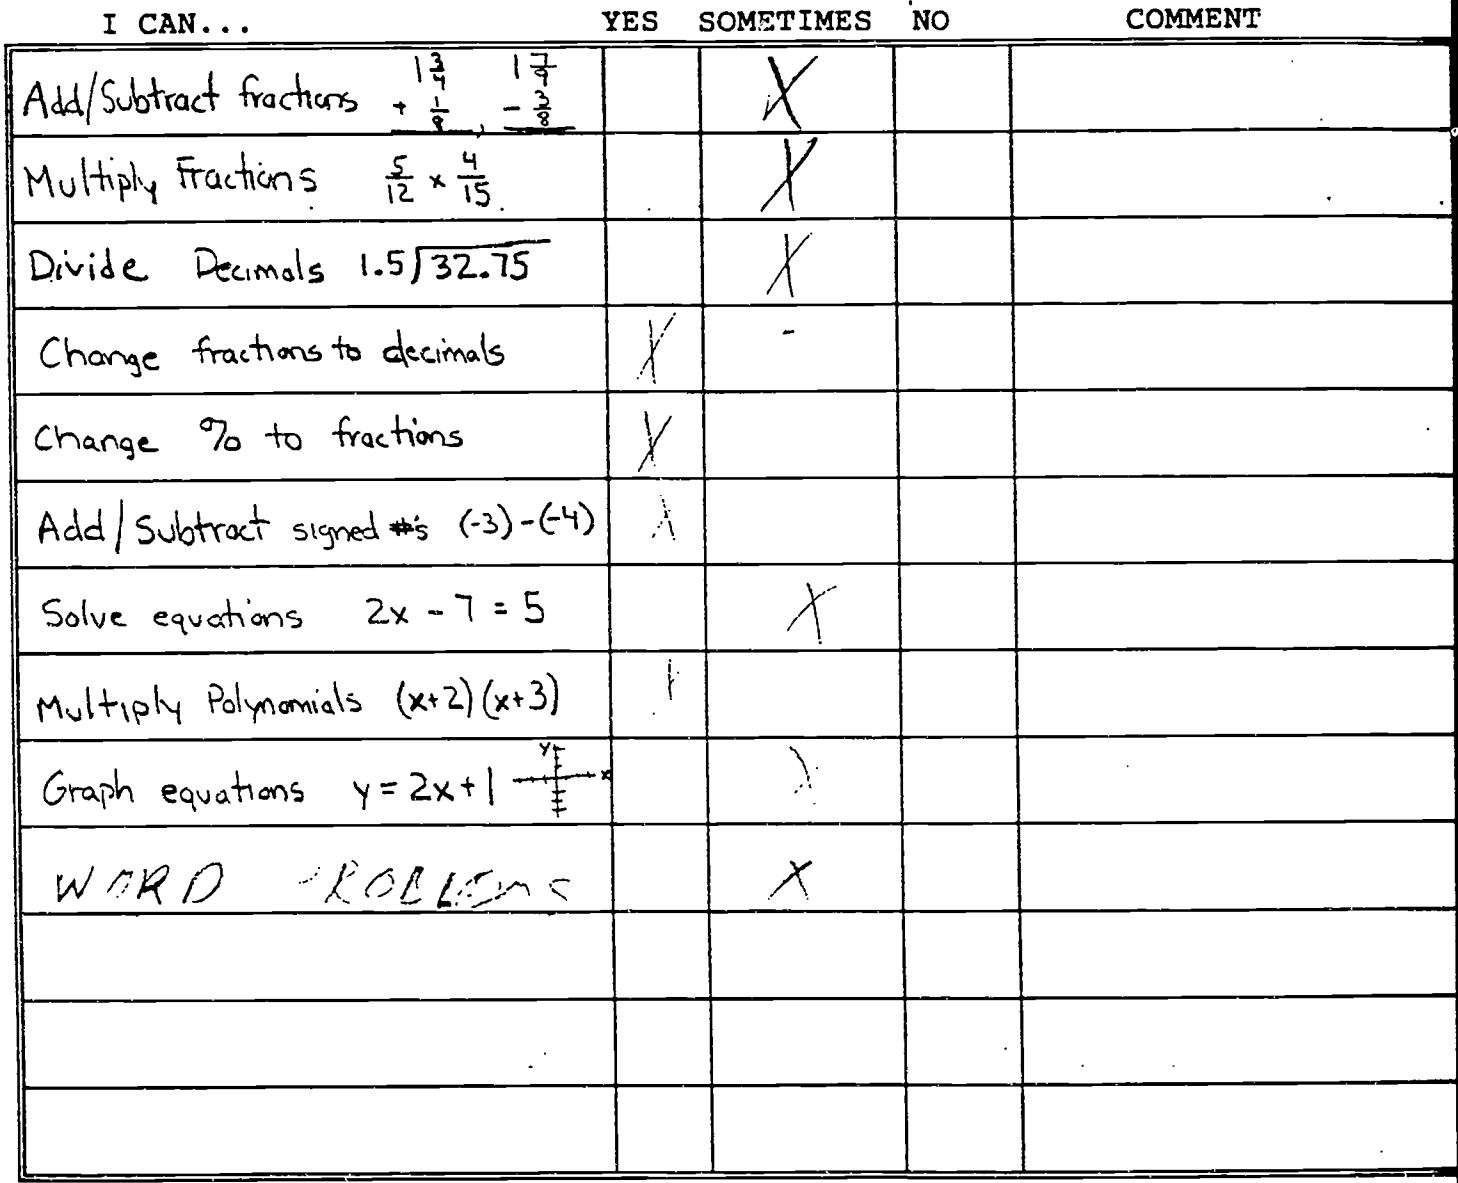 I CAN... YES SOMETIMES NO COMMENT
Add/Subtract fractions 1 3/4 + 1/9, 1 7/9 - 3/8 X
Multiply Fractions 5/12 x 4/15 X
Divide Decimals 1.5)32.75 X
Change fractions to decimals X -
Change % to fractions X
Add/Subtract signed #'s (-3)-(-4) X
Solve equations 2x - 7 = 5 X
Multiply Polynomials (x+2)(x+3)
Graph equations y = 2x+1 y x
WORD PROBLEMS X